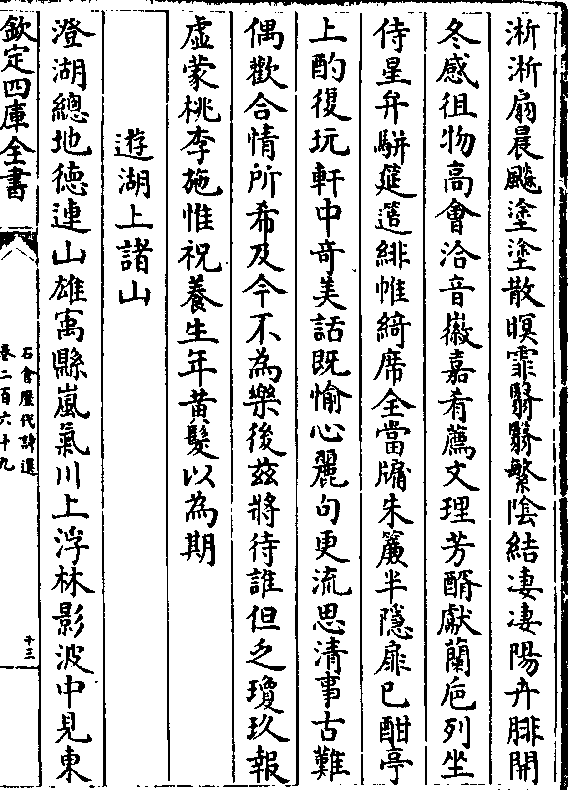 淅淅扇晨飈塗塗散暝霏翳翳繁陰結凄凄陽卉腓開
冬感徂物高會洽音徽嘉肴薦文理芳醑獻蘭巵列坐
侍星弁騈筵邅緋帷綺席全當牖朱簾半隱扉已酣亭
上酌復玩軒中奇美話既愉心麗句更流思清事古難
偶歡合情所希及今不為樂後兹將待誰但乏瓊玖報
虚蒙桃李施惟祝養生年黄髮以為期
遊湖上諸山
澄湖總地德連山雄寓縣嵐氣川上浮林影波中見東
欽定四庫全書
石倉歷代詩選
卷二百六十九
十三